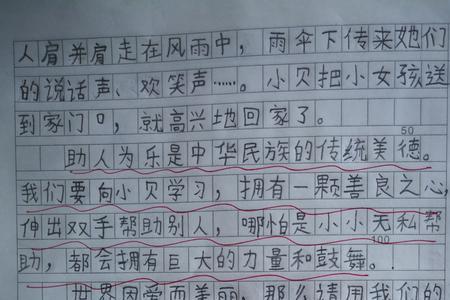 人肩并肩走在风雨中，雨伞下传来她们
的说话声、欢笑声……。小贝把小女孩送
到家门口，就高兴地回家了。
50
助人为乐是中华民族的传统美德。
我们要向小贝学习，拥有一颗善良之心，
伸出双手帮助别人，哪怕是小小无私帮
100
助，都会拥有巨大的力量和鼓舞。
世界因爱而美丽，那么请用我们的